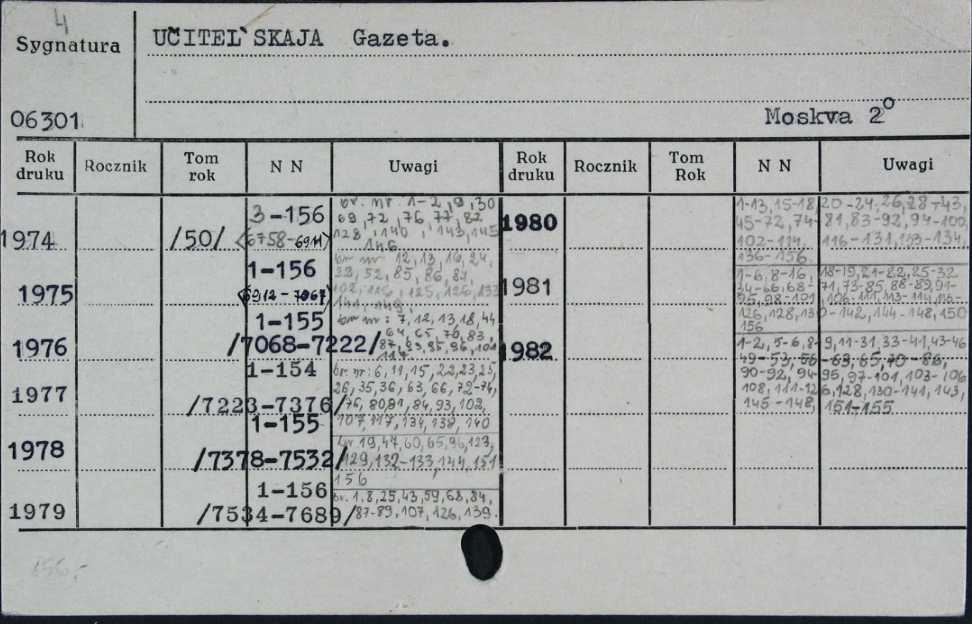 4
Sygnatura
UČITEL`SKAJA Gazeta.
06301.
Moskva 2°
Rok druku Rocznik Tom rok N N Uwagi Rok druku Rocznik Tom Rok N N Uwagi
1974 /50/ 3-156 <6758-6911> br. nr. 1-2, 9, 30
69, 72, 76, 77, 82
128, 140, 143, 145
146
1975 1-156 <6912-7067> br nr 12, 13, 16, 24,
52, 85, 86,
125, 126,
141, 149,
1976 1-155 /7068-7222/ br nr: 7, 12, 13, 18, 44
64, 65, 76, 83,
117
1977 1-154 /7223-7376/ br. nr: 6, 11, 15, 22, 23, 25,
26, 35, 36, 63, 66, 72-74,
76, 80, 81, 84, 93, 103,
107, 117, 134, 138, 140
1978 1-155 /7378-7532/ br 19, 47, 60, 65, 96, 123,
129, 132-133, 144, 151
156
1979 1-156 /7534-7689/ br. 1, 8, 25, 43, 59, 68, 84,
87-89, 107, 126, 139.
1980 1-13, 15-18, 20-24, 26, 28-43,
45-72, 74-81, 83-92, 94-100,
102-114, 116-131, 133-134,
136-156
1981 1-6, 8-16, 18-19, 21-22, 25-32
34-66, 68-71, 73-85, 88-89, 91-
95, 98-101, 106-111, 113-114, 116-
126, 128, 130-142, 144-148, 150
156
1982 1-2, 5-6, 8-9, 11-31, 33-41, 43-46
49-53, 56-63, 65, 70-86,
90-92, 94-95, 97-101, 103-106
108, 111-126, 128, 130-141, 143,
145-148, 151-155